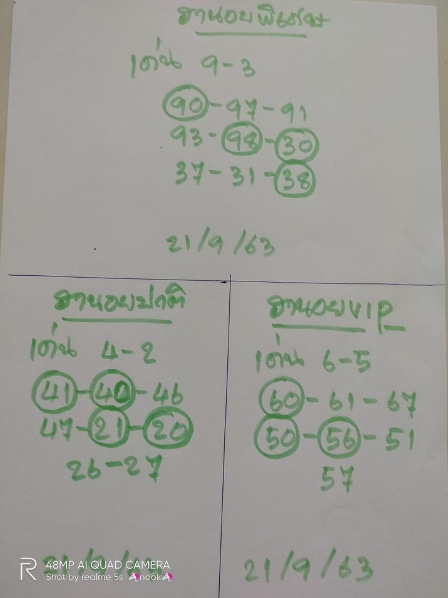 ฮานอยพิเศษ
เด่น 9-3
90-97-91
93-98-30
37-31-38
21/9/63
ฮานอยปกติ
เด่น 4-2
41-40-46
47-21-20
26-27
21/9/63
ฮานอยVIP
เด่น 6-5
60-61-67
50-56-51
57
21/9/63
48MP AI QUAD CAMERA
Shot by realme 5s AnookA